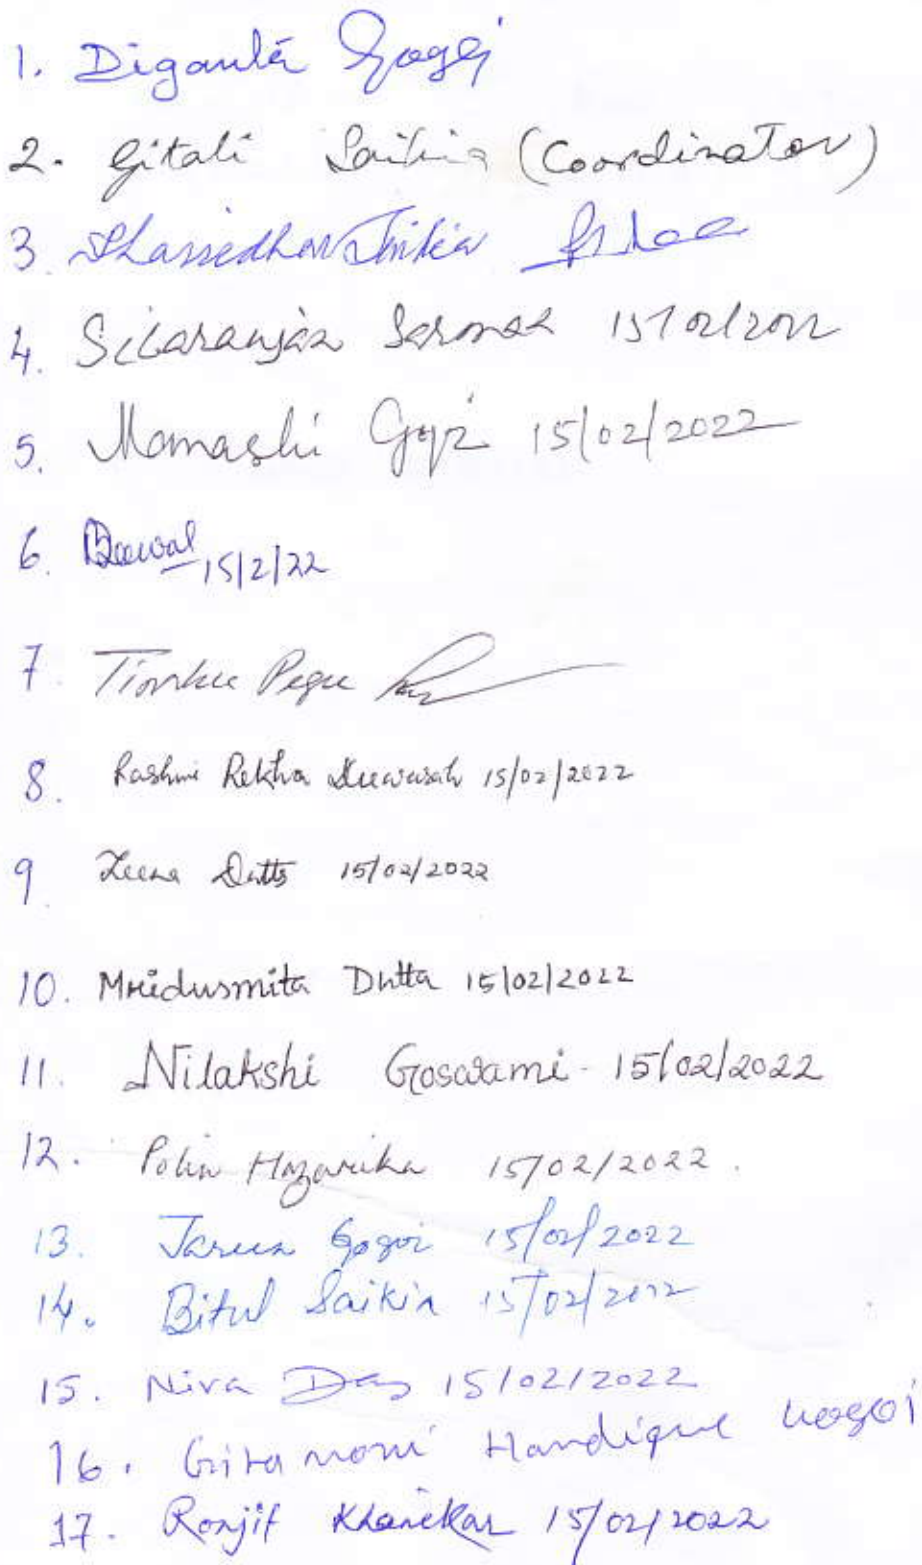 1. Diganta Gogoi
2. Gitali Saikia (Coordinator)
3
4. Sibaranjan Sarmah 15/02/2022
5. Mamashi Gogoi 15/02/2022
6. 15/2/22
7. Tinku Pegu
8. Rashmi Rekha 15/02/2022
9 Leena Dutta 15/02/2022
10. Mridusmita Dutta 15/02/2022
11. Nilakshi Goswami - 15/02/2022
12. Polin Hazarika 15/02/2022.
13. Tarun Gogoi 15/02/2022
14. Bitul Saikia 15/02/2022
15. Niva Das 15/02/2022
16. Gitamoni Handique Gogoi
17. Ronjit Khanikar 15/02/2022